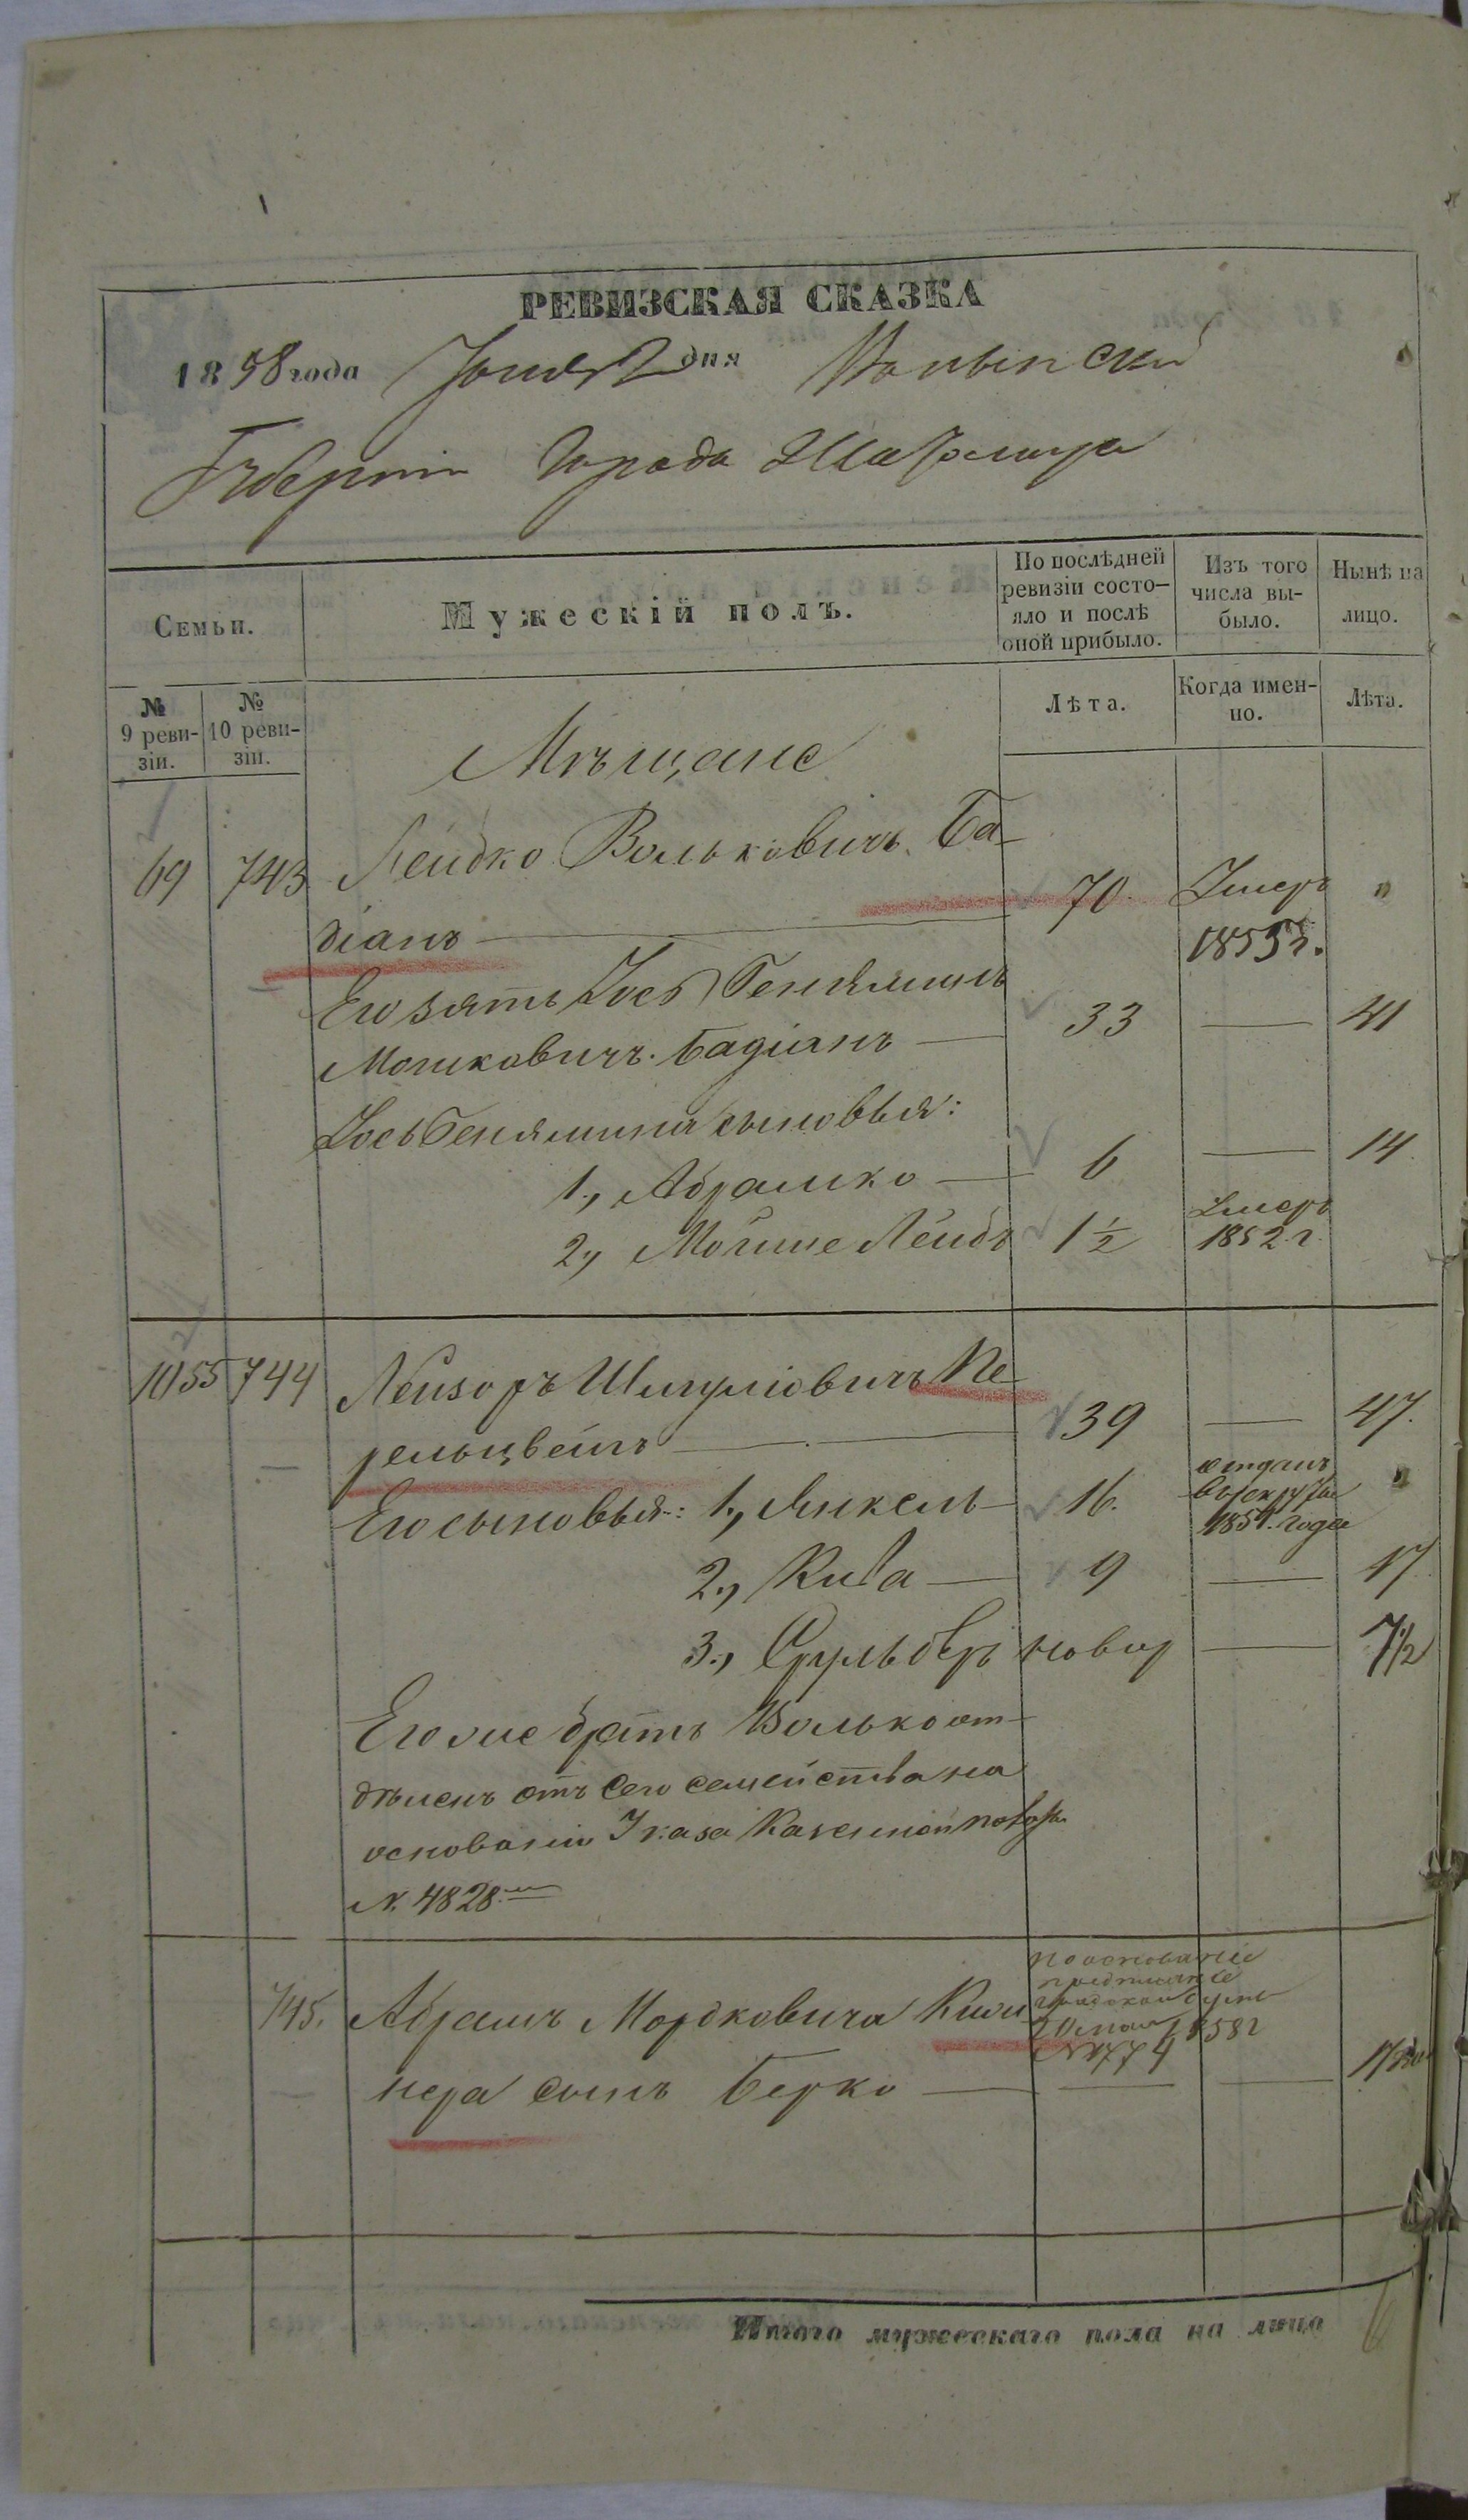 РЕВИЗСКАЯ СКАЗКА
1858 года Іюня 2 дня Волынской
Губерніи Города Житомира
Семьи.
Мужескій полъ.
По послѣдней ревизіи состо-
яло и послѣ оной прибыло.
Изъ того числа вы-
было.
Нынѣ на лицо.
№ 9 реви-
зіи.
№ 10 реви-
зіи.
Лѣта.
Когда имен-
но.
Лѣта.
Мѣщане
69 743 Лейбко Вольковичъ Ба-
діанъ — 70. Умеръ 1855 г. "
Его зять Іось Беняминъ
Мошковичъ Бадіянъ — 33 — 41
Іось Бенямина сыновья:
1., Абрамко — 6 — 14
2., Мойше Лейбъ 1½ Умеръ 1852 г.
1055 744 Лейзоръ Шмуліовичъ Пе-
рельцвейгъ — 39 — 47.
Его сыновья: 1., Янкель — 16. отданъ
в рекруты
1854. года "
2., Кива — 9 — 17
3., Срульбер новор — 7½
Его же братъ Волько от-
дѣленъ отъ сего семейства на
основаніи Указа Казенной палаты
N. 4828
745. Абрамъ Мордковича Кши-
нера сынъ Берко — — —
20 мая 1858 г
N 1774
Итого мужескаго пола на лицо 6